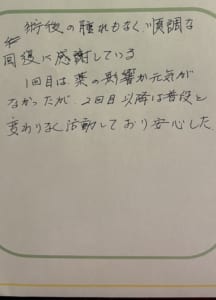 術後の腫れもなく順調な
回復に感謝している
1回目は薬の影響か元気が
なかったが、2回目以降は普段と
変わりなく活動しており安心した